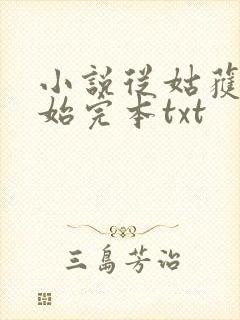 小説從姑獲
始完本txt
三島芳治